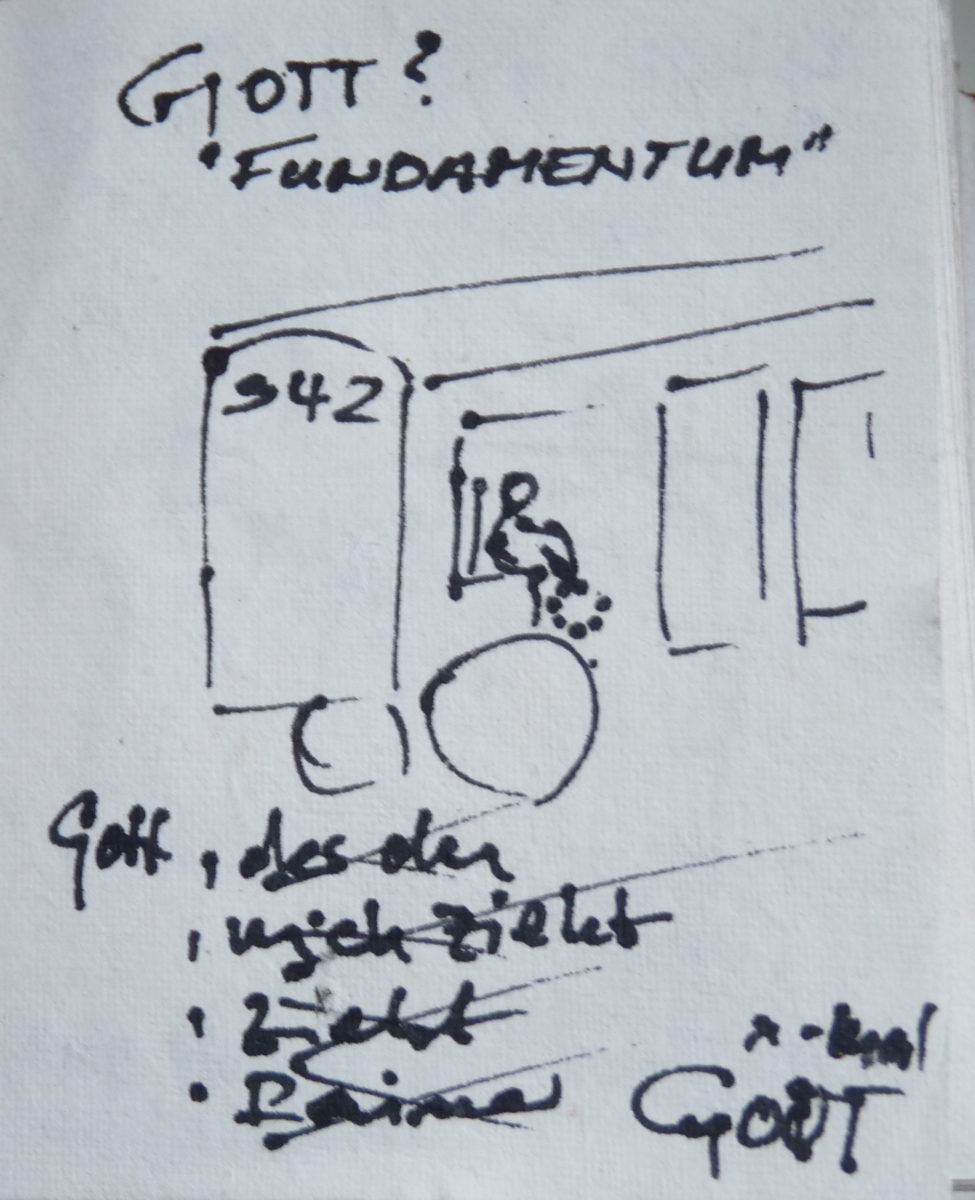 GOTT?
"FUNDAMENTUM"
942
Gott, des der
, mich zieht
· zieht
x-mal
GOTT